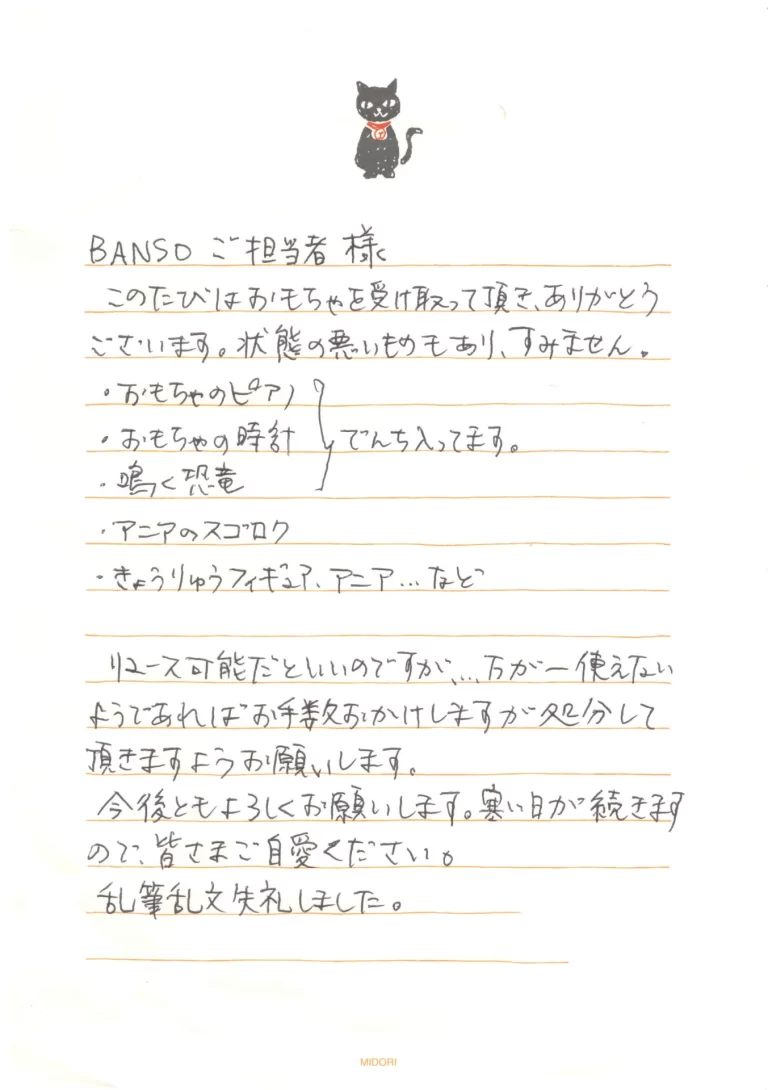 BANSO ご担当者 様
このたびはおもちゃを受け取って頂き、ありがとう
ございます。状態の悪いものもあり、すみません。
・おもちゃのピアノ
・おもちゃの時計 でんち入ってます。
・鳴く恐竜
・アニアのスゴロク
・きょうりゅうフィギュア、アニア…など
リユース可能だといいのですが、… 万が一使えない
ようであればお手数おかけしますが処分して
頂きますようお願いします。
今後ともよろしくお願いします。寒い日が続きます
ので、皆さまご自愛ください。
乱筆乱文失礼しました。
MIDORI